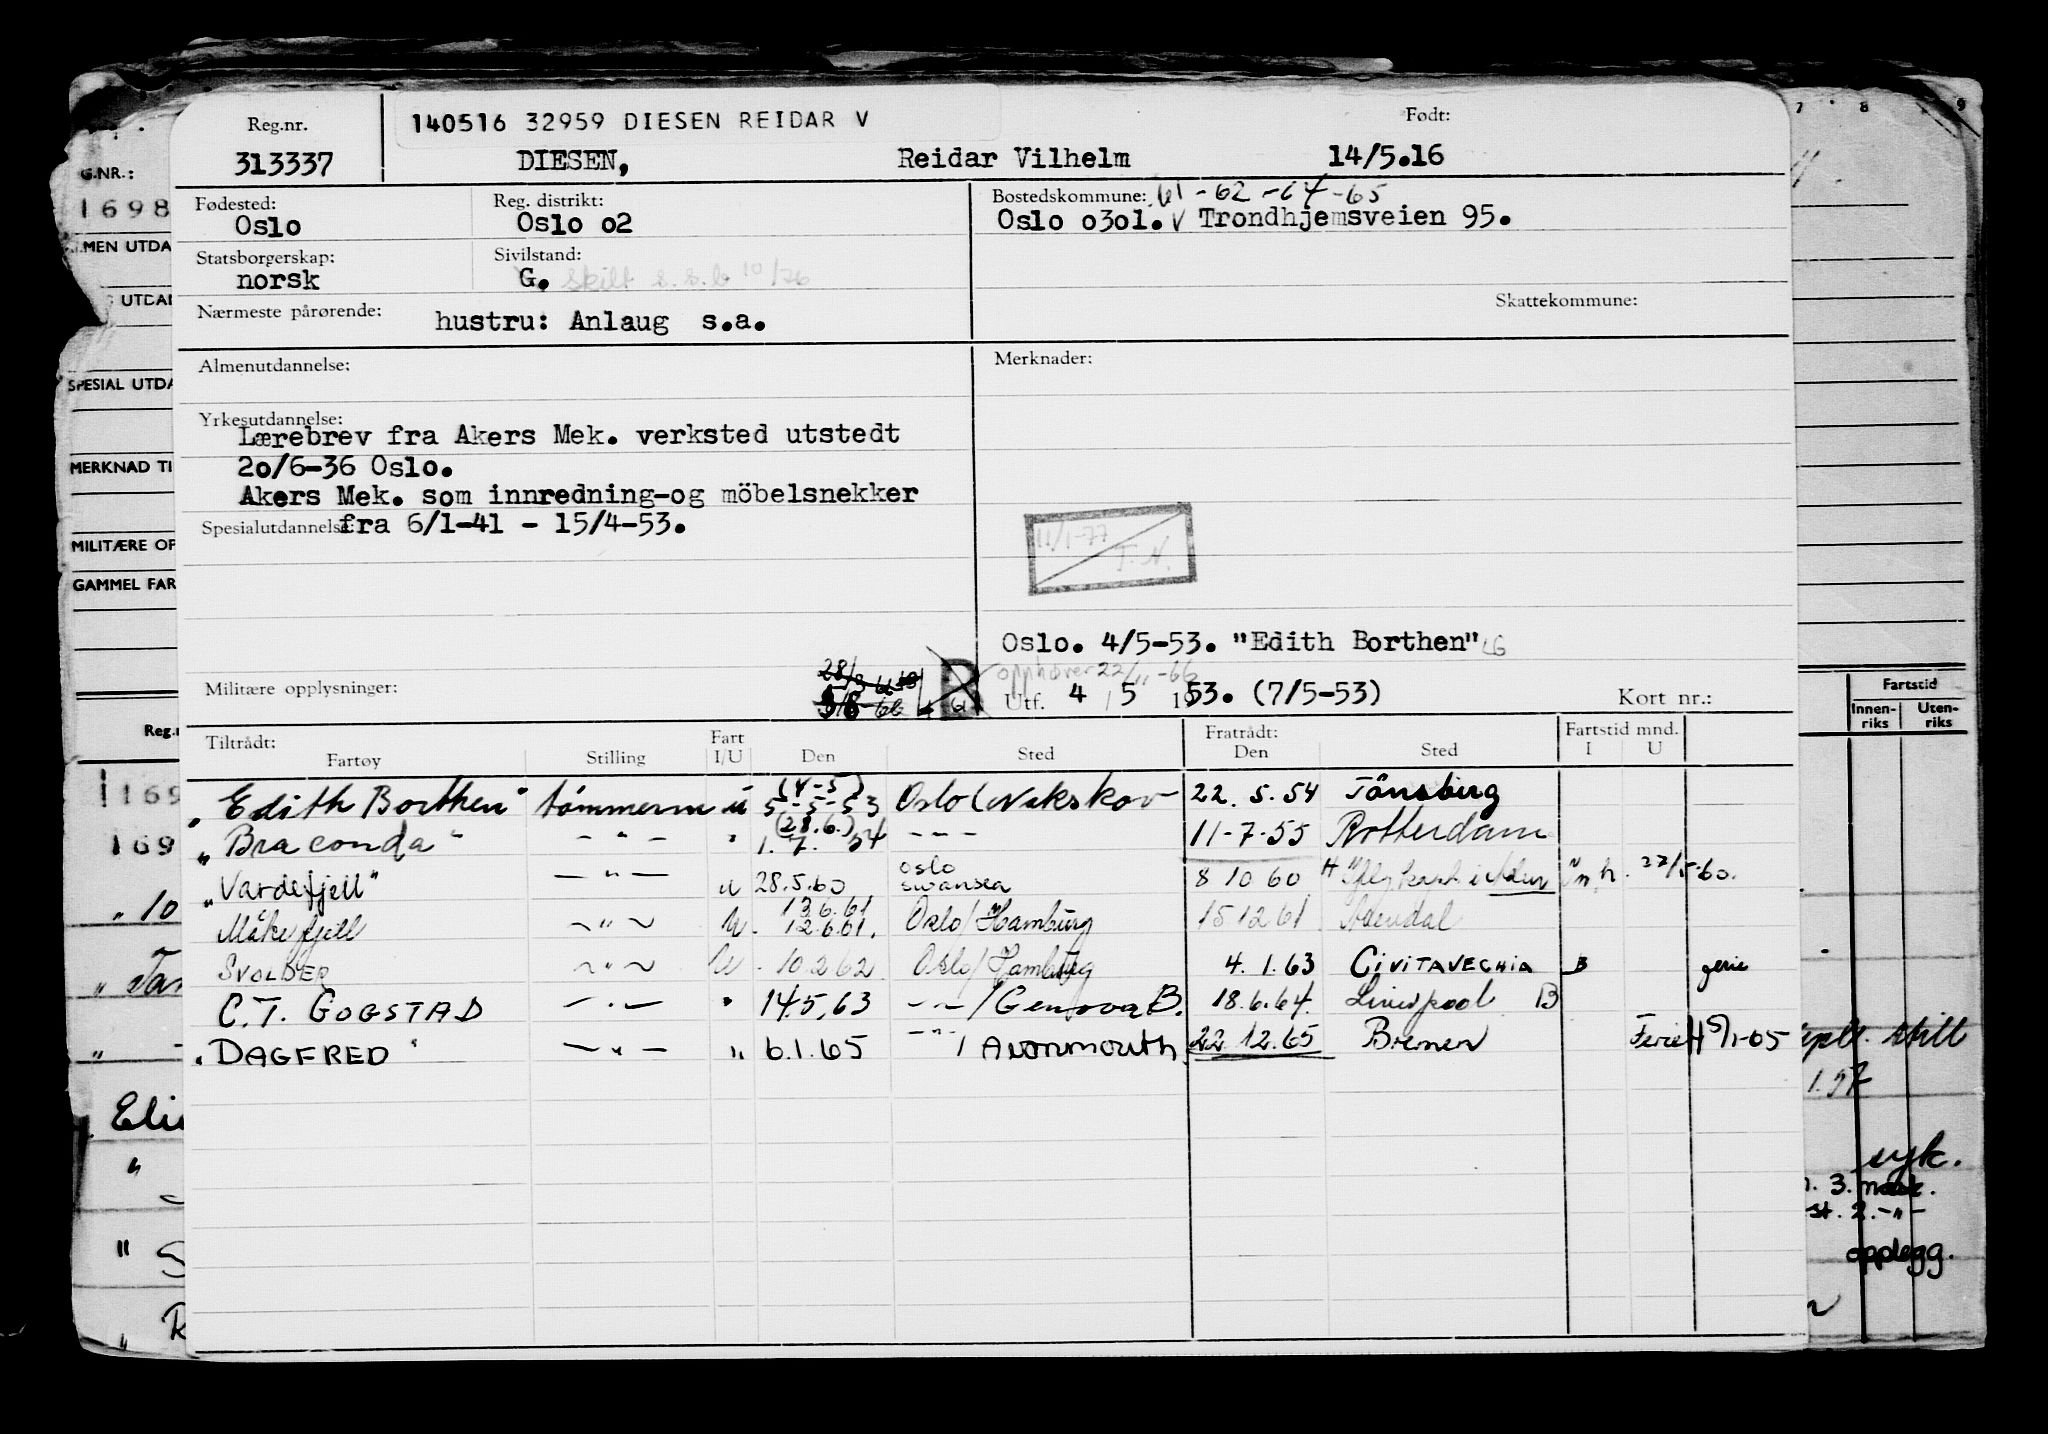 Reg.nr.
313337
140516 32959 DIESEN REIDAR V
Født:
DIESEN, Reidar Vilhelm 14/5.16
Fødested:
Oslo
Reg. distrikt:
Oslo o2
Bostedskommune: 61-62-64-65
Oslo o3ol. V Trondhjemsveien 95.
Statsborgerskap:
norsk
Sivilstand:
G. skilt s.s.b 10/76
Nærmeste pårørende: hustru: Anlaug s.a.
Skattekommune:
Almenutdannelse:
Merknader:
Yrkesutdannelse:
Lærebrev fra Akers Mek. verksted utstedt
20/6-36 Oslo.
Akers Mek. som innredning-og möbelsnekker
Spesialutdannelse: fra 6/1-41 - 15/4-53.
11/1-77
T.N.
Oslo. 4/5-53. "Edith Borthen"
opphøver 22/11-66
Militære opplysninger:
Utf. 4 / 5 1953. (7/5-53)
Kort nr.:
Tiltrådt:
Fartøy Stilling Fart I/U Den Sted
Fratrådt:
Den Sted
Fartstid mnd.
I U
"Edith Borthen" tömmerm u (4-5) 5-5-53 Oslo (Nakskov 22.5.54 Tönsberg
"Braconda" - " - " (28.6.) 1.7.54 - " - 11-7-55 Rotterdam
"Vardefjell" - " - u 28.5.60 Oslo Swansea 8 10 60 22/5-60.
Måkefjell - " - U. 13.6.61 12.6.61. Oslo/Hamburg 15 12 61 Arendal
SVOLDER - " - U. 10.2.62 Oslo/Hamburg 4.1.63 CIVITAVECHIA B ferie
C.T. GOGSTAD - " - " 14.5.63 - " - /Genova B. 18.6.64. Liverpool B
"DAGFRED" - " - " 6.1.65 - " - / AVONMOUTH. 22.12.65 Bremen Ferie
G.NR.:
1698
LMEN UTDA
UTDA
SPESIAL UTDA
MERKNAD TI
MILITÆRE OP
GAMMEL FAR
Reg.n
169
169
" 10
Fartstid
Innenriks
Utenriks
7 8 9
skilt
syk.
3. mask.
st. 2. - " -
opplegg.